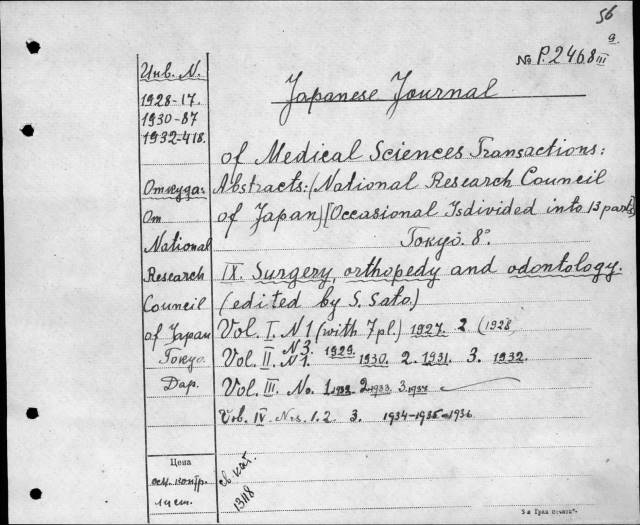 56
a
No P.2468 III
Инв. N.
1928-17.
1930-87
1932-418.
Откуда:
От
National
Research
Council
of Japan
Токуо.
Дар.
Цена
осн. контр.
лист.
Japanese Journal
of Medical Sciences Transactions:
Abstracts: (National Research Council
of Japan) [Occasional Is divided into 13 parts]
Токуо. 8°.
IX. Surgery, orthopedy and odontology.
(edited by S. Sato.)
Vol. I. N 1 (with 7 pl.) 1927. 2 (1928
N 3. 1929.
Vol. II N 1. 1930. 2. 1931. 3. 1932.
Vol. III. No. 1. 1932. 2. 1933. 3. 1934
Vol. IV Nrs. 1. 2. 3. 1934-1935-1936
св. кат.
13118